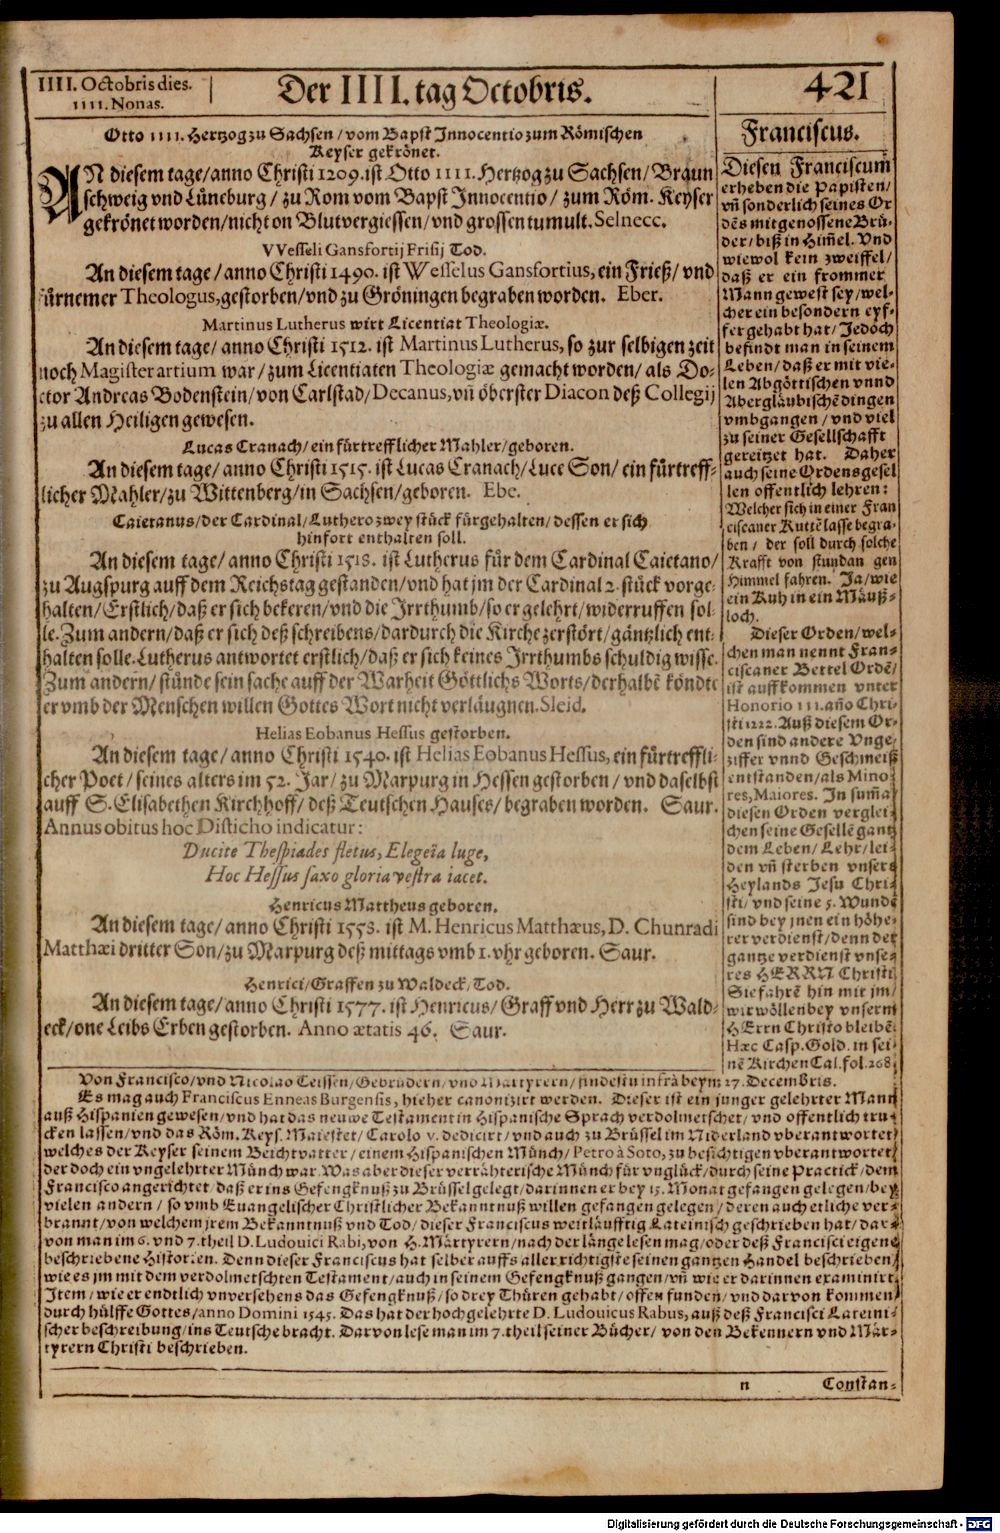 IIII. Octobris dies.
IIII. Nonas.
Der IIII. tag Octobris.
421
Otto IIII. Hertzog zu Sachsen / vom Bapst Innocentio zum Römischen
Keyser gekrönet.
AN diesem tage / anno Christi 1209. ist Otto IIII. Hertzog zu Sachsen / Braun
schweig vnd Lüneburg / zu Rom vom Bapst Innocentio / zum Röm. Keyser
gekrönet worden / nicht on Blutvergiessen / vnd grossen tumult. Selnecc.
VVesseli Gansfortij Frisij Tod.
An diesem tage / anno Christi 1490. ist Wesselus Gansfortius, ein Frieß / vnd
fürnemer Theologus, gestorben / vnd zu Gröningen begraben worden. Eber.
Martinus Lutherus wirt Licentiat Theologiæ.
An diesem tage / anno Christi 1512. ist Martinus Lutherus, so zur selbigen zeit
noch Magister artium war / zum Licentiaten Theologiæ gemacht worden / als Do-
ctor Andreas Bodenstein / von Carlstad / Decanus, vñ öberster Diacon deß Collegij
zu allen Heiligen gewesen.
Lucas Cranach / ein fürtrefflicher Mahler / geboren.
An diesem tage / anno Christi 1515. ist Lucas Cranach / Luce Son / ein fürtreff-
licher Mahler / zu Wittenberg / in Sachsen / geboren. Ebe.
Caietanus / der Cardinal / Luthero zwey stück fürgehalten / dessen er sich
hinfort enthalten soll.
An diesem tage / anno Christi 1518. ist Lutherus für dem Cardinal Caietano /
zu Augspurg auff dem Reichstag gestanden / vnd hat jm der Cardinal 2. stück vorge-
halten / Erstlich / daß er sich bekeren / vnd die Irrthumb / so er gelehrt / widerruffen sol-
le. Zum andern / daß er sich deß schreibens / dardurch die Kirche zerstört / gäntzlich ent-
halten solle. Lutherus antwortet erstlich / daß er sich keines Irrthumbs schuldig wisse.
Zum andern / stünde sein sache auff der Warheit Göttlichs Worts / derhalbē köndte
er vmb der Menschen willen Gottes Wort nicht verläugnen. Sleid.
Helias Eobanus Hessus gestorben.
An diesem tage / anno Christi 1540. ist Helias Eobanus Hessus, ein fürtreffli-
cher Poet / seines alters im 52. Jar / zu Marpurg in Hessen gestorben / vnd daselbst
auff S. Elisabethen Kirchhoff / deß Teutschen Hauses / begraben worden. Saur.
Annus obitus hoc Disticho indicatur:
Ducite Thespiades fletus, Elegeia luge,
Hoc Hessus saxo gloria vestra iacet.
Henricus Mattheus geboren.
An diesem tage / anno Christi 1558. ist M. Henricus Matthæus, D. Chunradi
Matthæi dritter Son / zu Marpurg deß mittags vmb 1. vhr geboren. Saur.
Henrici / Graffen zu Waldeck / Tod.
An diesem tage / anno Christi 1577. ist Henricus / Graff vnd Herr zu Wald-
eck / one Leibs Erben gestorben. Anno ætatis 46. Saur.
Franciscus.
Diesen Franciscum
erheben die Papisten /
vñ sonderlich seines Or
dēs mitgenossene Brü-
der / biß in Him̃el. Vnd
wiewol kein zweiffel /
daß er ein frommer
Mann gewest sey / wel-
cher ein besondern eyf-
fer gehabt hat / Jedoch
befindt man in seinem
Leben / daß er mit vie-
len Abgöttischen vnnd
Abergläubischē dingen
vmbgangen / vnd viel
zu seiner Gesellschafft
gereitzet hat. Daher
auch seine Ordensgesel
len offentlich lehren:
Welcher sich in einer Fran
ciscaner Kuttē lasse begra-
ben / der soll durch solche
Krafft von stund an gen
Himmel fahren. Ja / wie
ein Kuh in ein Mäuß-
loch.
Dieser Orden / wel-
chen man nennt Fran-
ciscaner Bettel Ordē /
ist auffkommen vnter
Honorio III. año Chri-
sti 1222. Auß diesem Or-
den sind andere Vnge-
ziffer vnnd Geschmeiß
entstanden / als Mino-
res, Maiores. In sum̃a
diesen Orden verglei-
chen seine Gesellē gantz
dem Leben / Lehr / lei-
den vñ sterben vnsers
Heylands Jesu Chri-
sti / vnd seine 5. Wundē
sind bey jnen ein höhe-
rer verdienst / denn der
gantze verdienst vnse-
res HERRN Christi.
Sie fahrē hin mit jm /
wir wöllen bey vnserm
HErrn Christo bleibē.
Hæc Casp. Gold. in sei-
nē Kirchen Cal. fol. 268.
Von Francisco / vnd Nicolao Teissen / Gebrüdern / vnd Martyrern / findestu infrà beym 27. Decembris.
Es mag auch Franciscus Enneas Burgensis, hieher canonizirt werden. Dieser ist ein junger gelehrter Mann
auß Hispanien gewesen / vnd hat das neuwe Testament in Hispanische Sprach verdolmetschet / vnd offentlich tru-
cken lassen / vnd das Röm. Keys. Maiestet / Carolo v. dedicirt / vnd auch zu Brüssel im Niderland vberantwortet /
welches der Keyser seinem Beichtvatter / einem Hispanischen Münch / Petro à Soto, zu besichtigen vberantwortet /
der doch ein vngelehrter Münch war. Was aber dieser verrähterische Münch für vnglück / durch seine Practick / dem
Francisco angerichtet / daß er ins Gefengknuß zu Brüssel gelegt / darinnen er bey 15. Monat gefangen gelegen / bey
vielen andern / so vmb Euangelischer Christlicher Bekanntnuß willen gefangen gelegen / deren auch etliche ver-
brannt / von welchem jrem Bekanntnuß vnd Tod / dieser Franciscus weitläufftig Lateinisch geschrieben hat / dar-
von man im 6. vnd 7. theil D. Ludouici Rabi, von H. Märtyrern / nach der länge lesen mag / oder deß Francisci eigene
beschriebene Historien. Denn dieser Franciscus hat selber auffs aller richtigste seinen gantzen Handel beschrieben /
wie es jm mit dem verdolmetschten Testament / auch in seinem Gefengknuß gangen / vñ wie er darinnen examinirt.
Item / wie er endtlich vnversehens das Gefengknuß / so drey Thüren gehabt / offen funden / vnd darvon kommen /
durch hülffe Gottes / anno Domini 1545. Das hat der hochgelehrte D. Ludouicus Rabus, auß deß Francisci Lateini-
scher beschreibung / ins Teutsche bracht. Darvon lese man im 7. theil seiner Bücher / von den Bekennern vnd Mär-
tyrern Christi beschrieben.
n
Constan-
Digitalisierung gefördert durch die Deutsche Forschungsgemeinschaft - DFG